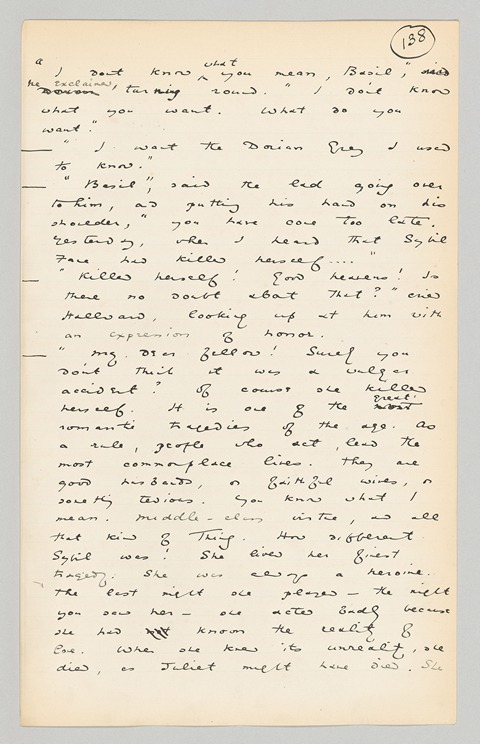 138
" I don't know what you mean, Basil", said
he exclaimed, turning round. " I don't know
what you want. What do you
want."
" I want the Dorian Gray I used
to know."
" Basil", said the lad going over
to him, and putting his hand on his
shoulder, " you have come too late.
Yesterday, when I heard that Sybil
Vane had killed herself.... "
" Killed herself! Good heavens! Is
there no doubt about that?" cried
Hallward, looking up at him with
an expression of horror.
" My dear fellow! Surely you
don't think it was a vulgar
accident? Of course she killed
herself. It is one of the great
romantic tragedies of the age. As
a rule, people who act, lead the
most commonplace lives. They are
good husbands, or faithful wives, or
something tedious. You know what I
mean. middle-class virtue, and all
that kind of thing. How different
Sybil was! She lived her finest
tragedy. She was always a heroine.
The last night she played - the night
you saw her - she acted badly because
she had known the reality of
love. When she knew its unreality, she
died, as Juliet might have died. She